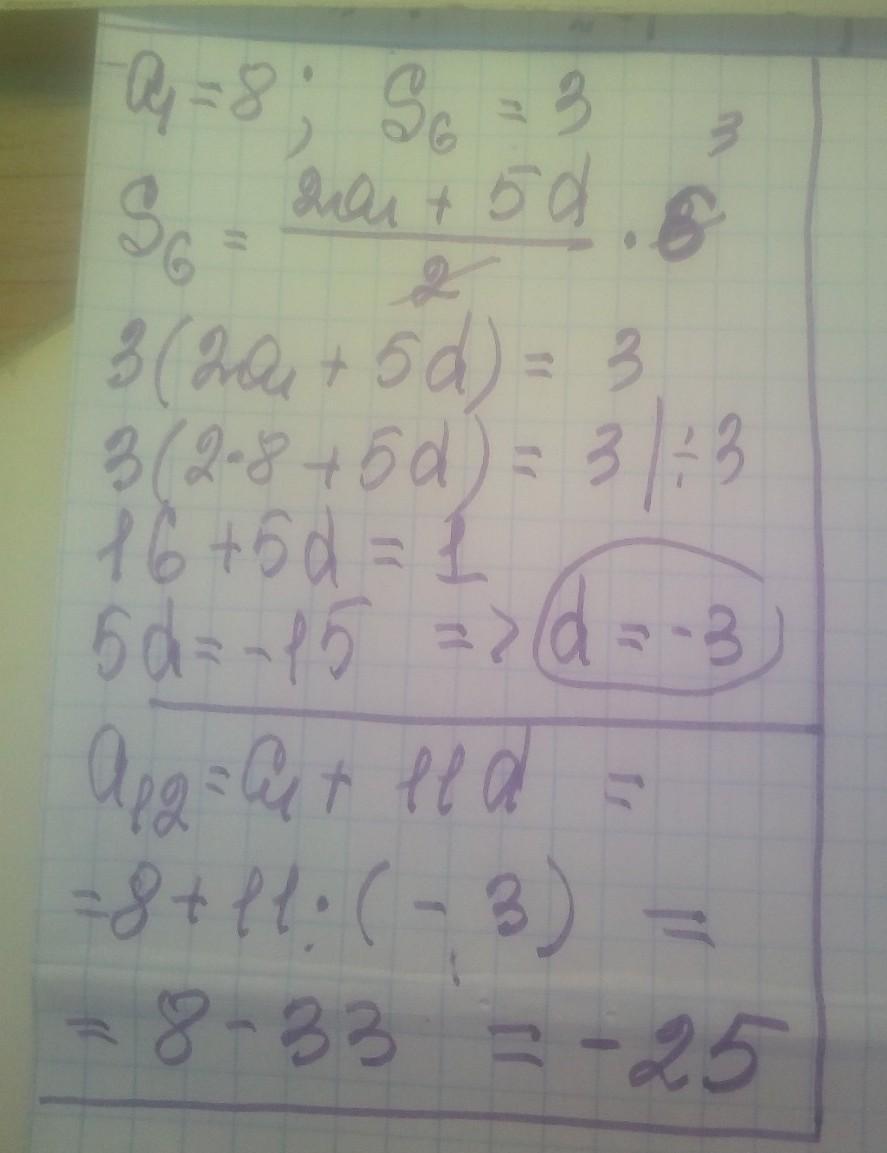 a₁ = 8 ; S₆ = 3
S₆ = (2a₁ + 5d)/2 · 6 3
3(2a₁ + 5d) = 3
3(2·8 + 5d) = 3 | ÷3
16 + 5d = 1
5d = -15 => d = -3
a₁₂ = a₁ + 11d =
= 8 + 11·(-3) =
= 8 - 33 = -25